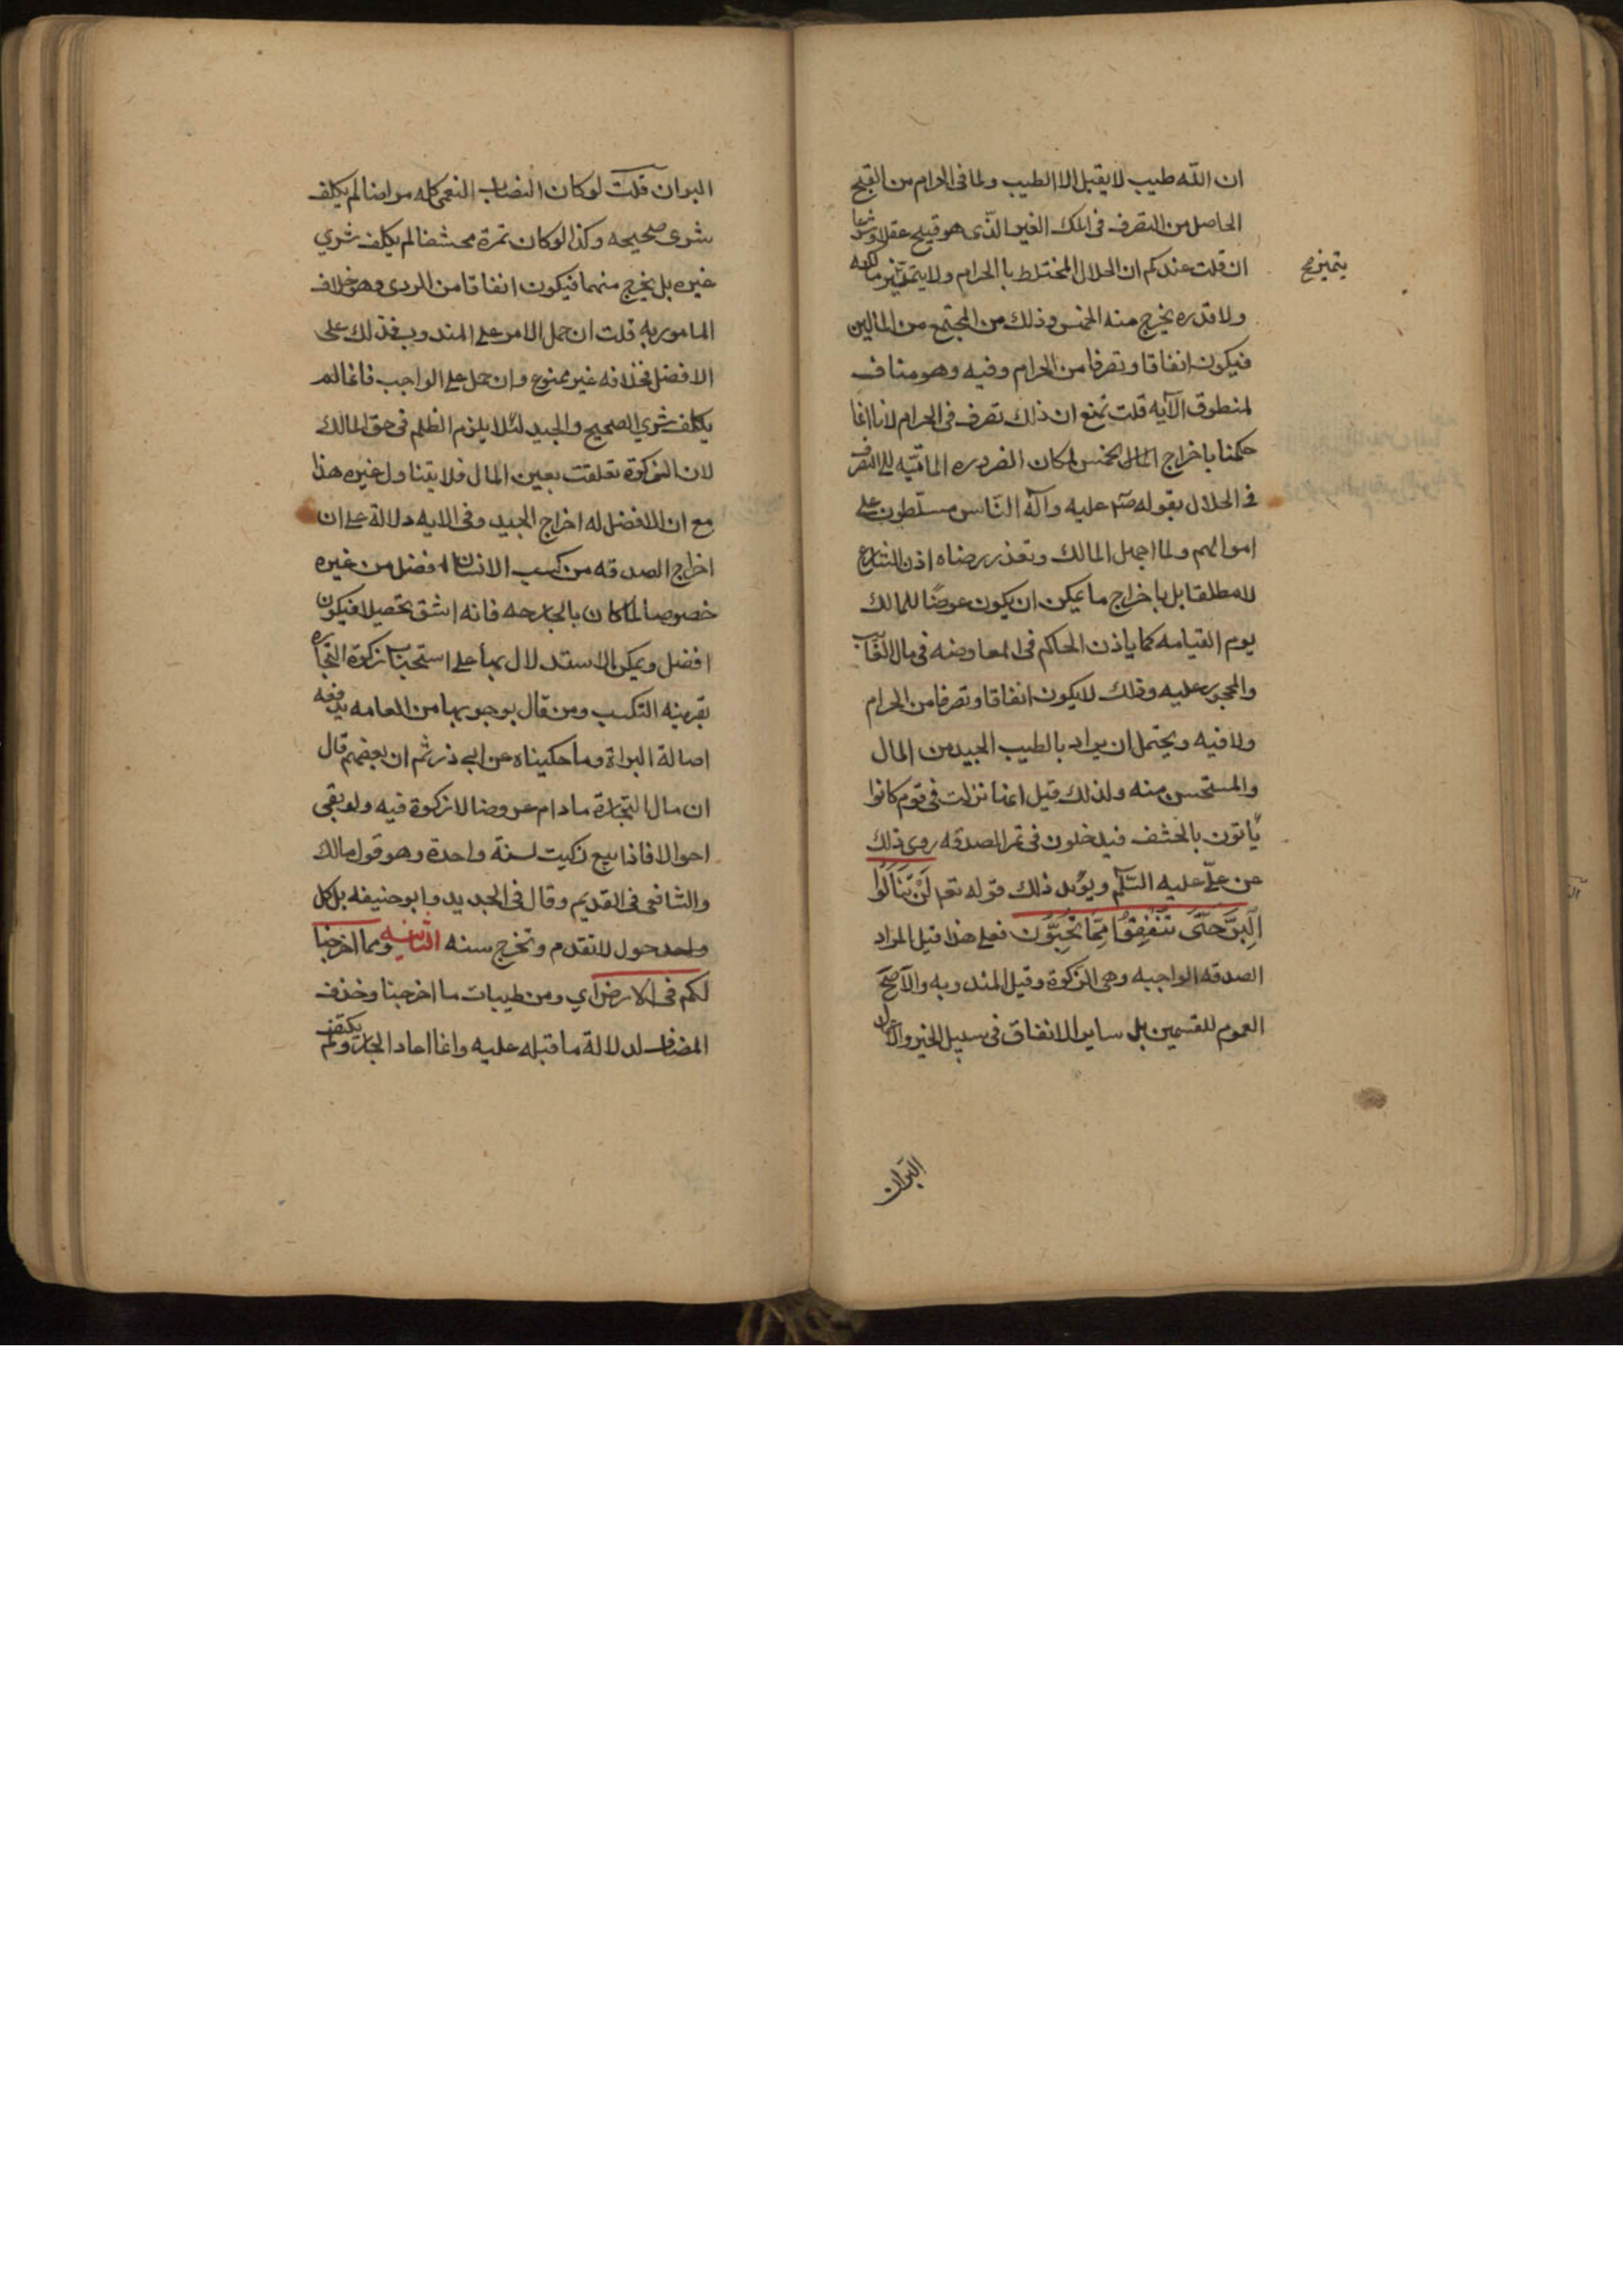 ان الله طيب لا يقبل الا الطيب ولما فى الحرام من القبح
الحاصل من التصرف فى الملك الغير الذى هو قبيح عقلا وشرعا
ان قلت عندكم ان الحلال المختلط بالحرام ولا يتميز مالكه
يتميز صح
ولا قدره يخرج منه الخمس وذلك من المجتمع من المالين
فيكون انفاقا وتصرفا من الحرام وفيه وهو مناف
لمنطوق الآيه قلت نمنع ان ذلك تصرف فى الحرام لانا انما
حكمنا باخراج المال الخمس لمكان الضروره الماسه للتصرف
فى الحلال بقوله صلى عليه وآله الناس مسلطون على
اموالهم ولما اجهل المالك وتعذر رضاه اذن الشارع
لا مطلقا بل باخراج ما يمكن ان يكون عوضا للمالك
يوم القيامه كما ياذن الحاكم فى المعاوضه فى مال الغايب
والمحجور عليه وذلك لا يكون انفاقا وتصرفا من الحرام
ولا فيه ويحتمل ان يراد بالطيب الجيد من المال
والمستحسن منه ولذلك قيل انما نزلت فى قوم كانوا
يأتون بالحشف فيدخلون فى تمر الصدقه روى ذلك
عن على عليه السلم ويؤيد ذلك قوله تعم لَنْ تَنَالُوا
اَلْبِرَّ حَتَّى تُنْفِقُوا مِمَّا تُحِبُّونَ فعلى هذا قيل المراد
الصدقه الواجبه وهى الزكوة وقيل المندوبه والاصح
العموم للقسمين بل ساير الانفاق فى سبيل الخير و
البوان
البوان قلت لو كان النصاب النعمى كله مراضا لم يكلف
شرى صحيحه وكذا لو كان تمرة محشفا لم يكلف شري
غيره بل يخرج منهما فيكون انفاقا من الردى وهو خلاف
المامور به قلت ان حمل الامر على المندوب فذلك على
الافضل فخلافه غير ممنوع وان حمل على الواجب فانما لم
يكلف شري الصحيح والجيد لئلا يلزم الظلم فى حق المالك
لان الزكوة تعلقت بعين المال فلا يتناول غيره هذا
مع ان الافضل له اخراج الجيد وفى الايه دلالة على ان
اخراج الصدقه من كسب الانسان افضل من غيره
خصوصا لما كان بالجارحه فانه اشق تحصيلا فيكون
افضل ويمكن الاستدلال بها على استحباب زكوة التجاره
بقرينه التكسب ومن قال بوجوبها من العامه يدفعه
اصالة البراة وما حكيناه عن ابى ذر ثم ان بعضهم قال
ان مال التجارة مادام عروضا لا زكوة فيه ولو بقى
احوالا فاذا بيع زكيت لسنة واحدة وهو قول مالك
والشافعى فى القديم وقال فى الجديد وابو حنيفه بل كل
واحد حول لا تقدم وتخرج سنه الثانيه ومما اخرجنا
لكم فى الارض اي ومن طيبات ما اخرجنا وحذف
المضاف لدلالة ما قبله عليه وانما اعاد الجار ولم يكتف